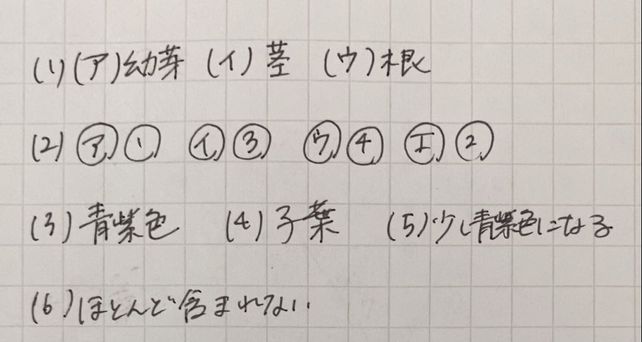 (1)(ア)幼芽 (イ)茎 (ウ)根
(2)㋐① ㋑③ ㋒④ ㋓②
(3)青紫色 (4)子葉 (5)少し青紫色になる
(6)ほとんど含まれない